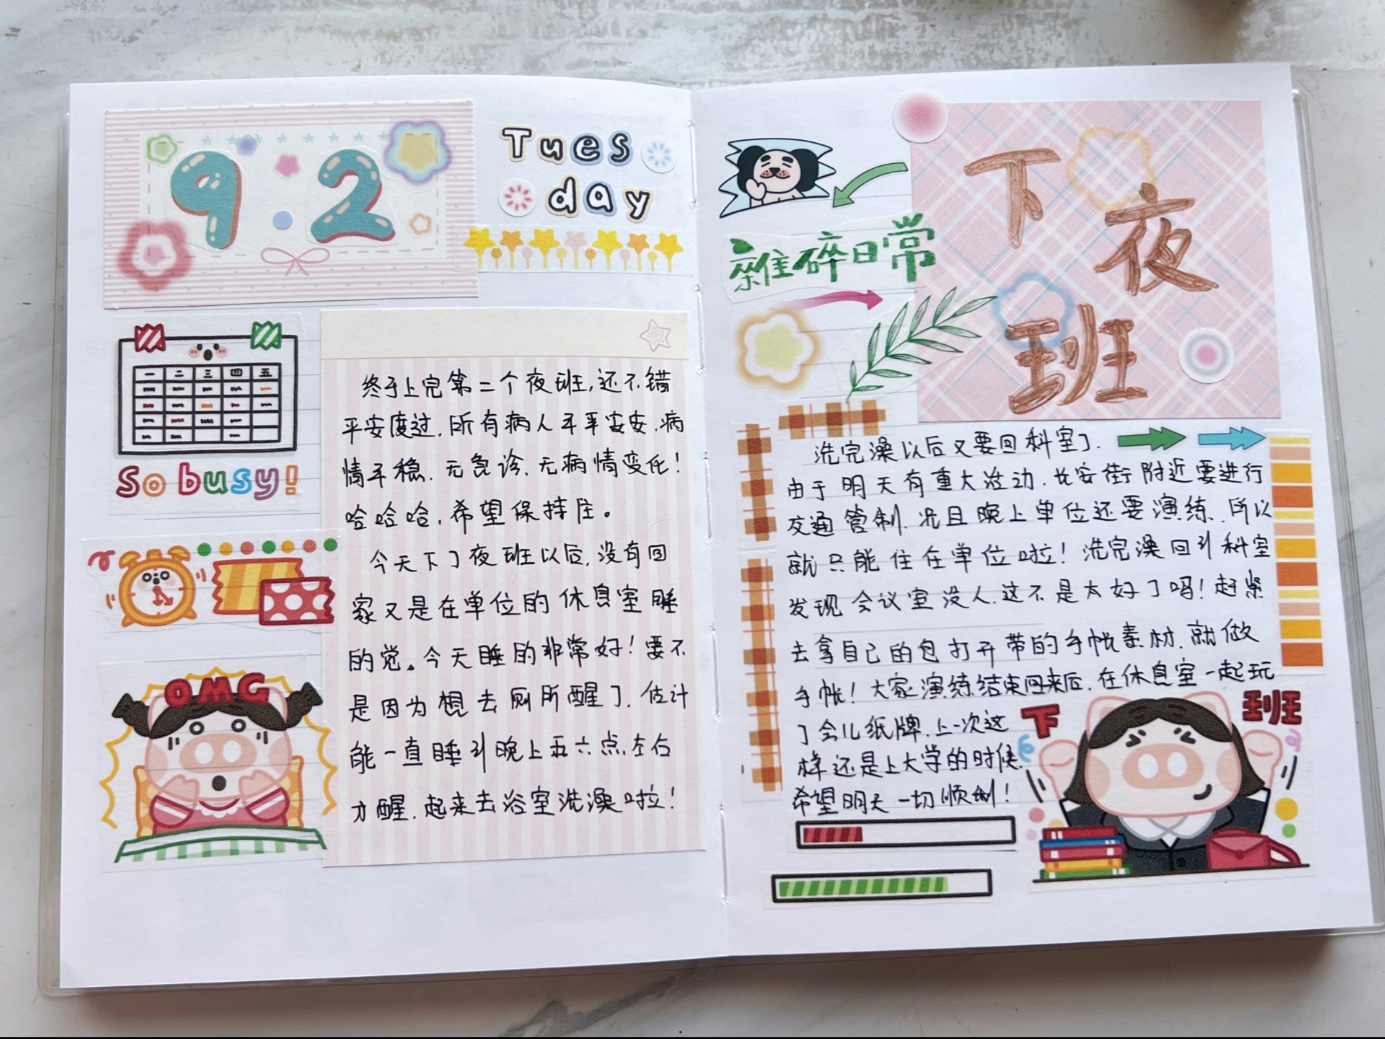 9 2
Tues
day
一 二 三 四 五
So busy!
OMG
终于上完第二个夜班,还不错
平安度过.所有病人平平安安.病
情平稳.无急诊.无病情变化!
哈哈哈,希望保持住。
今天下了夜班以后,没有回
家又是在单位的休息室睡
的觉。今天睡的非常好!要不
是因为想去厕所醒了.估计
能一直睡到晚上五六点左右
才醒.起来去浴室洗澡啦!
雜碎日常
下
夜
班
洗完澡以后又要回科室了.
由于明天有重大活动.长安街附近要进行
交通管制.况且晚上单位还要演练.所以
就只能住在单位啦!洗完澡回到科室
发现会议室没人.这不是太好了吗!赶紧
去拿自己的包打开带的手帐素材.就做
手帐!大家演练结束回来后.在休息室一起玩
了会儿纸牌.上一次这
样还是上大学的时候.
希望明天一切顺利!
下 班